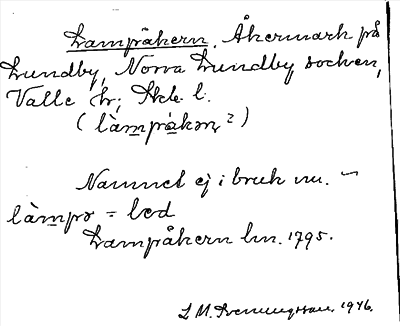 Lampåkern. Åkermark på
Lundby, Norra Lundby socken,
Valle hd, Skbg l.
(làmpråkən ?)
Namnet ej i bruk nu. –
làmpə = led
Lampåkern lm. 1795.
L. M. Svenungsson. 1946.